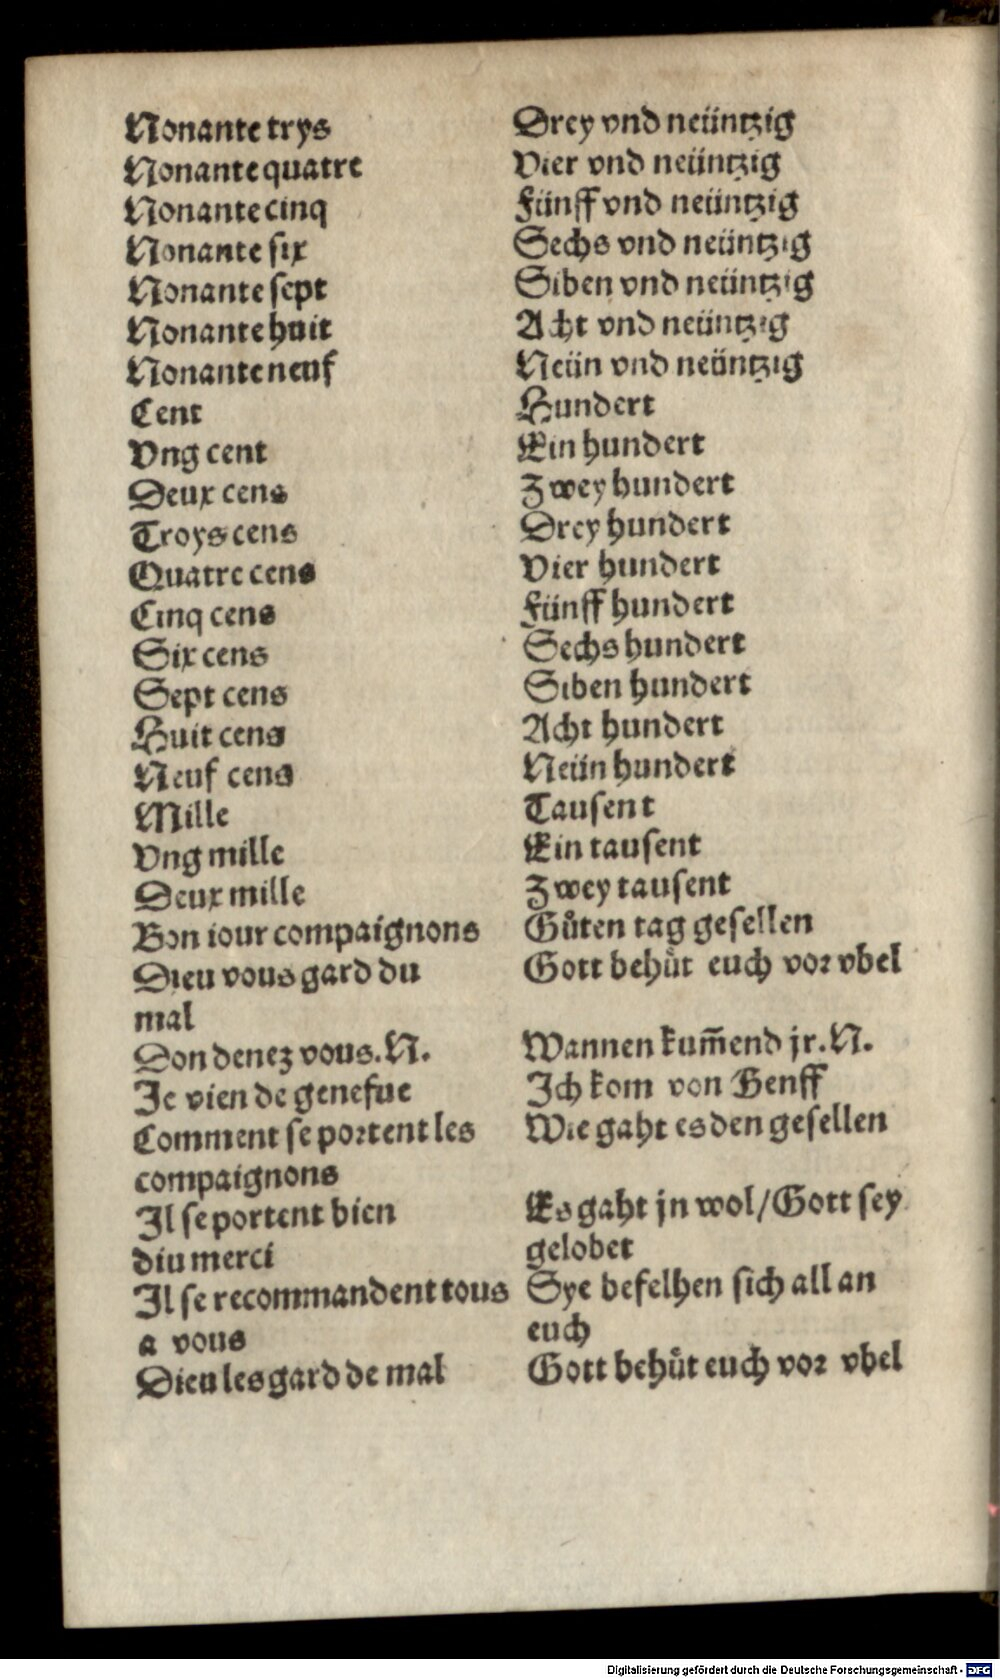 Nonante trys Drey vnd neüntzig
Nonante quatre Vier vnd neüntzig
Nonante cinq Fünff vnd neüntzig
Nonante six Sechs vnd neüntzig
Nonante sept Siben vnd neüntzig
Nonante huit Acht vnd neüntzig
Nonante neuf Neün vnd neüntzig
Cent Hundert
Vng cent Ein hundert
Deux cens Zwey hundert
Troys cens Drey hundert
Quatre cens Vier hundert
Cinq cens Fünff hundert
Six cens Sechs hundert
Sept cens Siben hundert
Huit cens Acht hundert
Neuf cens Neün hundert
Mille Tausent
Vng mille Ein tausent
Deux mille Zwey tausent
Bon iour compaignons Gůten tag gesellen
Dieu vous gard du Gott behůt euch vor vbel
mal
Don denez vous.N. Wannen kum̄end jr.N.
Je vien de genefue Ich kom von Genff
Comment se portent les Wie gaht es den gesellen
compaignons
Il se portent bien Es gaht jn wol/Gott sey
diu merci gelobet
Il se recommandent tous Sye befelhen sich all an
a vous euch
Dieu les gard de mal Gott behůt euch vor vbel
Digitalisierung gefördert durch die Deutsche Forschungsgemeinschaft - DFG